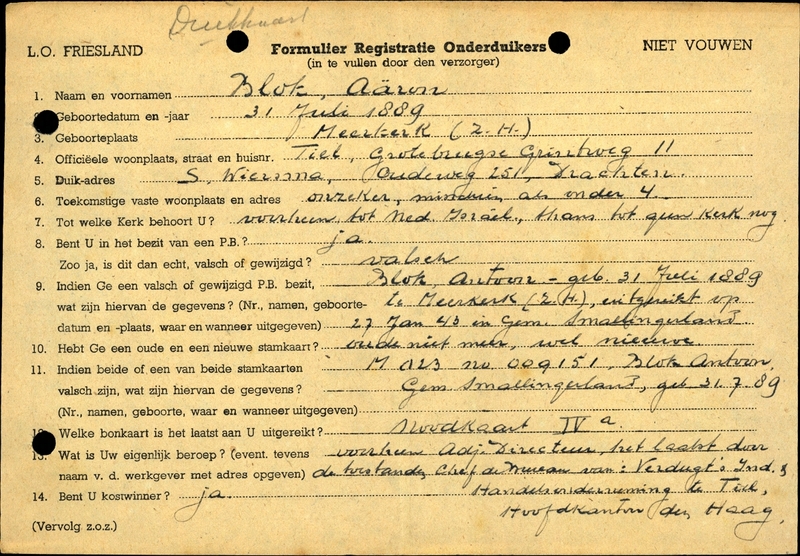 Duikkaart
L.O. FRIESLAND Formulier Registratie Onderduikers NIET VOUWEN
(in te vullen door den verzorger)
1. Naam en voornamen Blok, Aäron
2. Geboortedatum en -jaar 31 Juli 1889
3. Geboorteplaats Meerkerk (Z.H.)
4. Officiëele woonplaats, straat en huisnr. Tiel, Grotebrugse Grintweg 11
5. Duik-adres S. Wiersma, Oudeweg 251, Drachten.
6. Toekomstige vaste woonplaats en adres onzeker, minstens als onder 4.
7. Tot welke Kerk behoort U? voorheen tot Ned. Israël., thans tot geen Kerk nog.
8. Bent U in het bezit van een P.B.? ja.
Zoo ja, is dit dan echt, valsch of gewijzigd? valsch
9. Indien Ge een valsch of gewijzigd P.B. bezit, Blok, Antoon - geb. 31 Juli 1889
wat zijn hiervan de gegevens? (Nr., namen, geboorte- te Meerkerk (Z.H.), uitgereikt op
datum en -plaats, waar en wanneer uitgegeven) 27 Jan 43 in Gem. Smallingerland
10. Hebt Ge een oude en een nieuwe stamkaart? oude niet meer, wel nieuwe.
11. Indien beide of een van beide stamkaarten M 023 no 009151, Blok Antoon,
valsch zijn, wat zijn hiervan de gegevens? Gem Smallingerland, geb 31.7.89
(Nr., namen, geboorte, waar en wanneer uitgegeven)
Welke bonkaart is het laatst aan U uitgereikt? Noodkaart IV a.
13. Wat is Uw eigenlijk beroep? (event. tevens voorheen Adj. Directeur, het laatst door
naam v. d. werkgever met adres opgeven) de toestanden Chef de Bureau van: Verdugt's Ind. &
14. Bent U kostwinner? ja. Handelsonderneming te Tiel,
Hoofdkantoor den Haag.
(Vervolg z.o.z.)